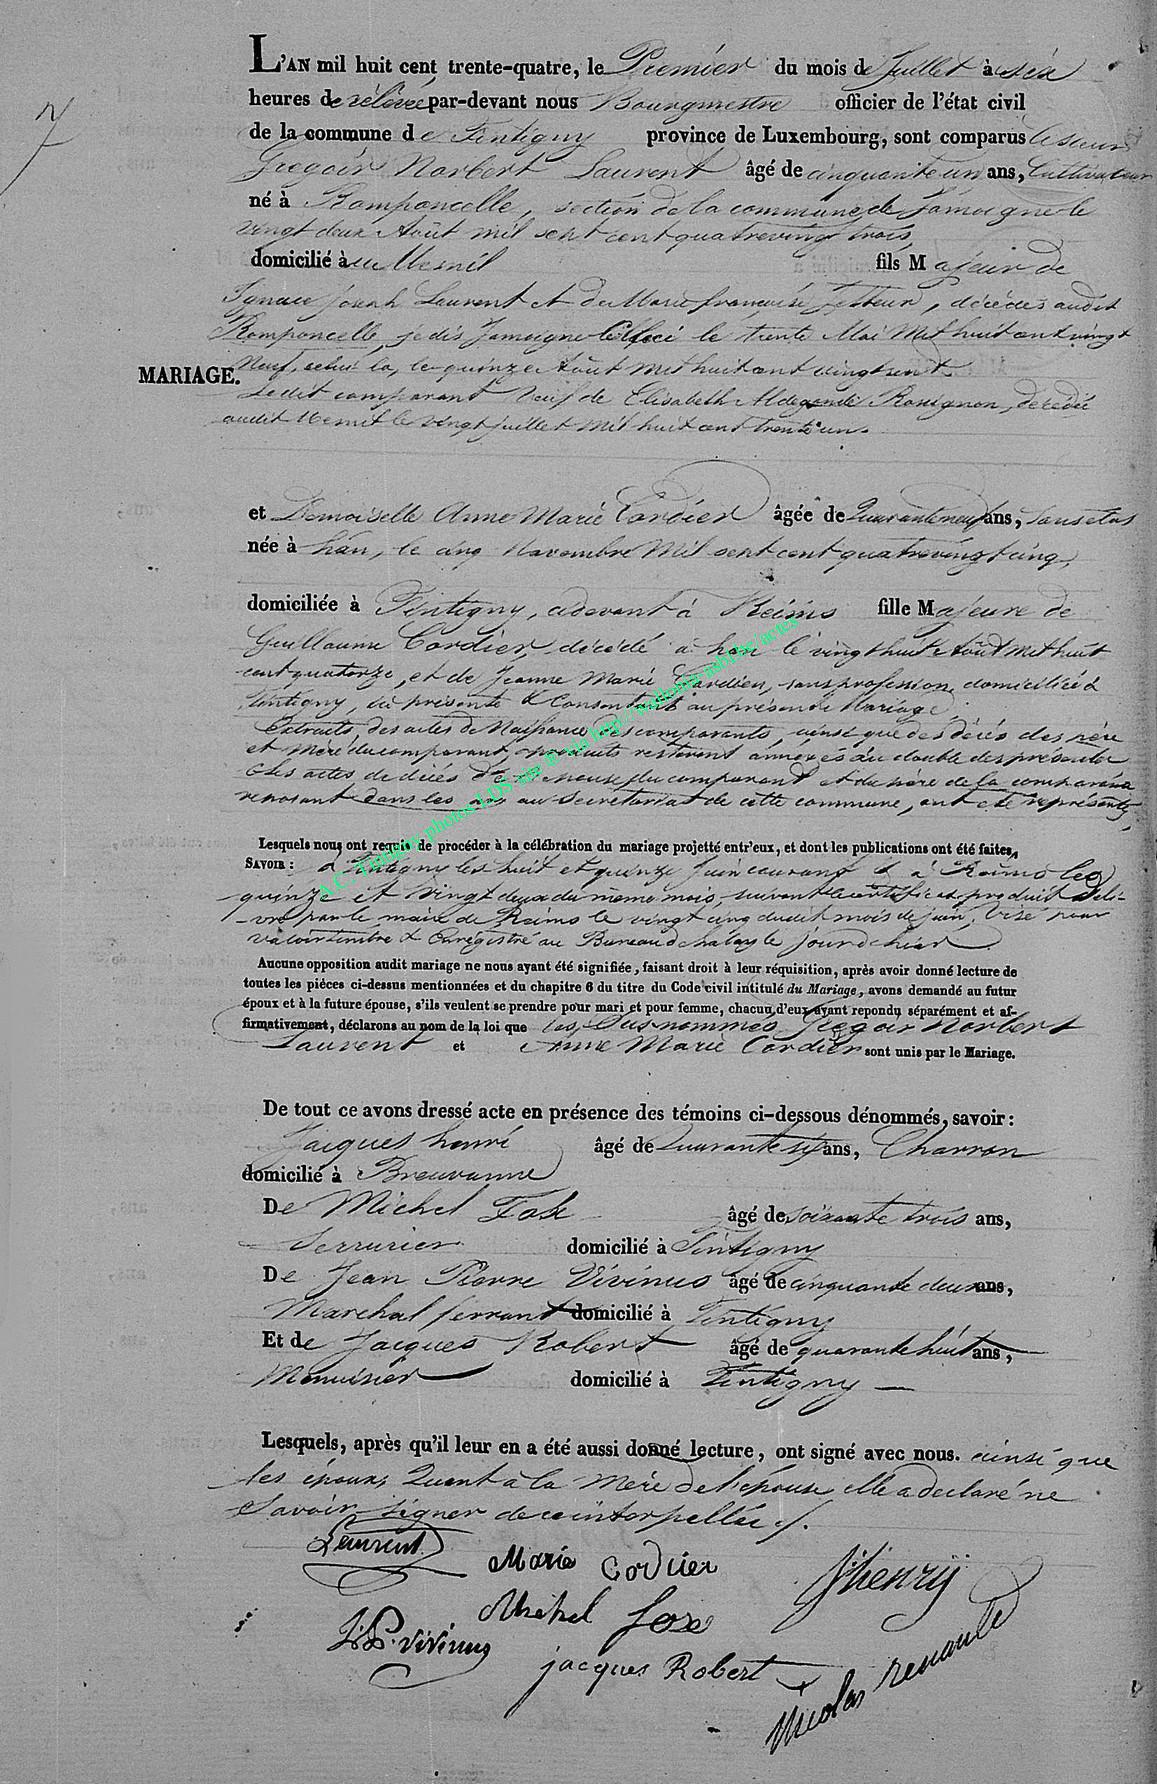 7
L'AN mil huit cent trente-quatre, le Premier du mois de Juillet à six
heures de rélévée par-devant nous Bourgmestre officier de l'état civil
de la commune de Tintigny province de Luxembourg, sont comparus le sieur
Gregoir Norbert Laurent âgé de cinquante un ans, Cultivateur
né à Romponcelle, section de la commune de Jamoigne le
vingt deux Août mil sept cent quatrevingt trois,
domicilié à au Mesnil fils Majeur de
Ignace Joseph Laurent et de Marie françoise, décédés audit
Romponcelle, je dis Jamoigne le trente Mai Mil huit cent vingt
MARIAGE.
Neuf, celui la, le quinze Août mil huit cent vingt sept
Ledit comparant Veuf de Elisabeth Aldegonde Rossignon, décédée
audit Mesnil le vingt juillet Mil huit cent trente un.
et Demoiselle Anne Marie Cordier âgée de Quarante neuf ans, Sans etat
née à han, le cinq Novembre Mil sept cent quatrevingt cinq,
domiciliée à Tintigny, cidevant à Reims fille Majeure de
Guillaume Cordier, décédé à han le vingt huit Août mil huit
cent quatorze, et de Jeanne Marie, sans profession, domiciliée à
Tintigny, ici présente & Consentant au présent Mariage.
Extraits des actes de Naissance des comparants, ainsi que des décès des père
et Mère du comparant produits resteront annexés au double des présentes
& les actes de décès de l'épouse du comparant et du père de la comparante
reposant dans les au secrétariat de cette commune, ont été représentés,
Lesquels nous ont requis de procéder à la célébration du mariage projetté entr'eux, et dont les publications ont été faites,
SAVOIR: à Tintigny les huit et quinze Juin courant & à Reims les
quinze et Vingt deux du même mois, suivant le certificat produit & déli-
vré par le maire de Reims le vingt cinq dudit mois de juin, Visé pour
valoir timbre & Enrégistré au Bureau d'etalle le jour d'hier
Aucune opposition audit mariage ne nous ayant été signifiée, faisant droit à leur réquisition, après avoir donné lecture de
toutes les pièces ci-dessus mentionnées et du chapitre 6 du titre du Code civil intitulé du Mariage, avons demandé au futur
époux et à la future épouse, s'ils veulent se prendre pour mari et pour femme, chacun d'eux ayant repondu séparément et af-
firmativement, déclarons au nom de la loi que les Susnommés Gregoir Norbert
Laurent et Anne Marie Cordier sont unis par le Mariage.
De tout ce avons dressé acte en présence des témoins ci-dessous dénommés, savoir:
Jacques henri âgé de Quarante six ans, Charron
domicilié à Breuvanne
De Michel Fox âgé de soixante trois ans,
Serrurier domicilié à Tintigny
De Jean Pierre Vivinus âgé de cinquante deux ans,
Marechal ferrant domicilié à Tintigny
Et de Jacques Robert âgé de quarante huit ans,
Menuisier domicilié à Tintigny
Lesquels, après qu'il leur en a été aussi donné lecture, ont signé avec nous. ainsi que
les époux, Quant à la Mère de l'épouse elle a declaré ne
Savoir signer de ce interpellée ./.
Laurent
Marie Cordier
J henry
Michel fox
J: P. vivinus
jacques Robert
Nicolas renauld
A.C. Tintigny photos LDS site ® via http://wallonia-asbl.be/actes